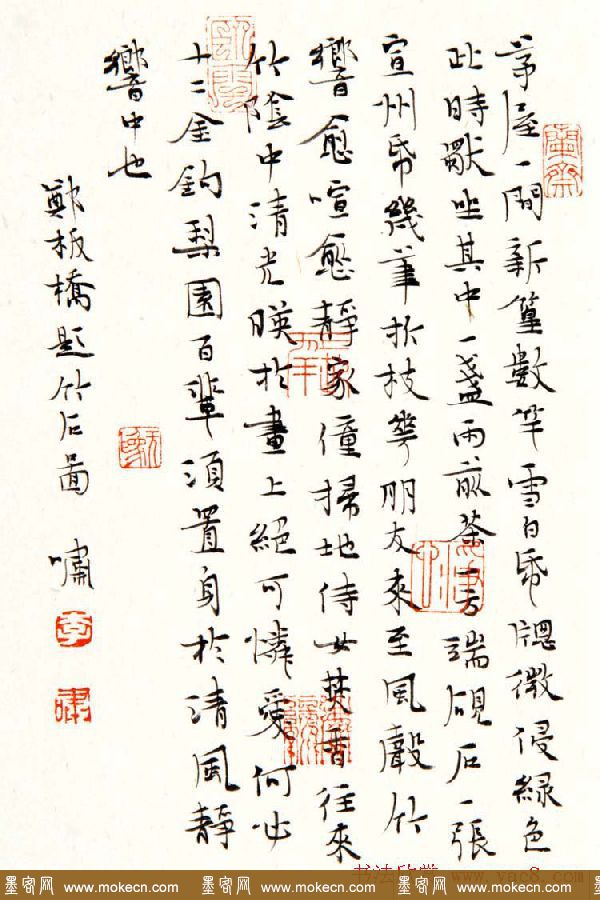 茅屋一間新篁數竿雪白帋牕微侵綠色
此時獨坐其中一盞雨前茶一方端硯石一張
宣州帋幾筆折枝華朋友來至風聲竹
響愈喧愈靜家僮掃地侍女焚香往來
竹陰中清光暎於畫上絕可憐愛何必
十二金釵梨園百輩須置身於清風靜
響中也
鄭板橋題竹石圖 嘯
李
嘯
书法欣赏 www.yac8.
墨客网 www.mokecn.com 墨客网 www.mokecn.com 墨客网 www.mokecn.com 墨客网 www.mokecn.com